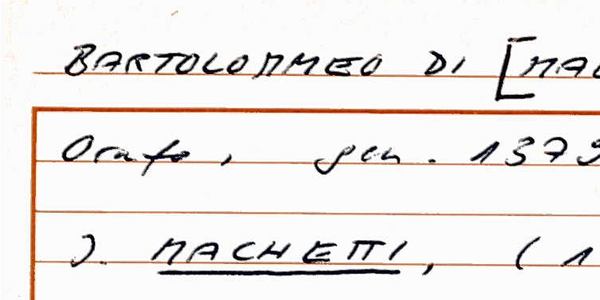 BARTOLOMMEO DI [MAC
Orafo, gen. 1379
J. MACHETTI, (1